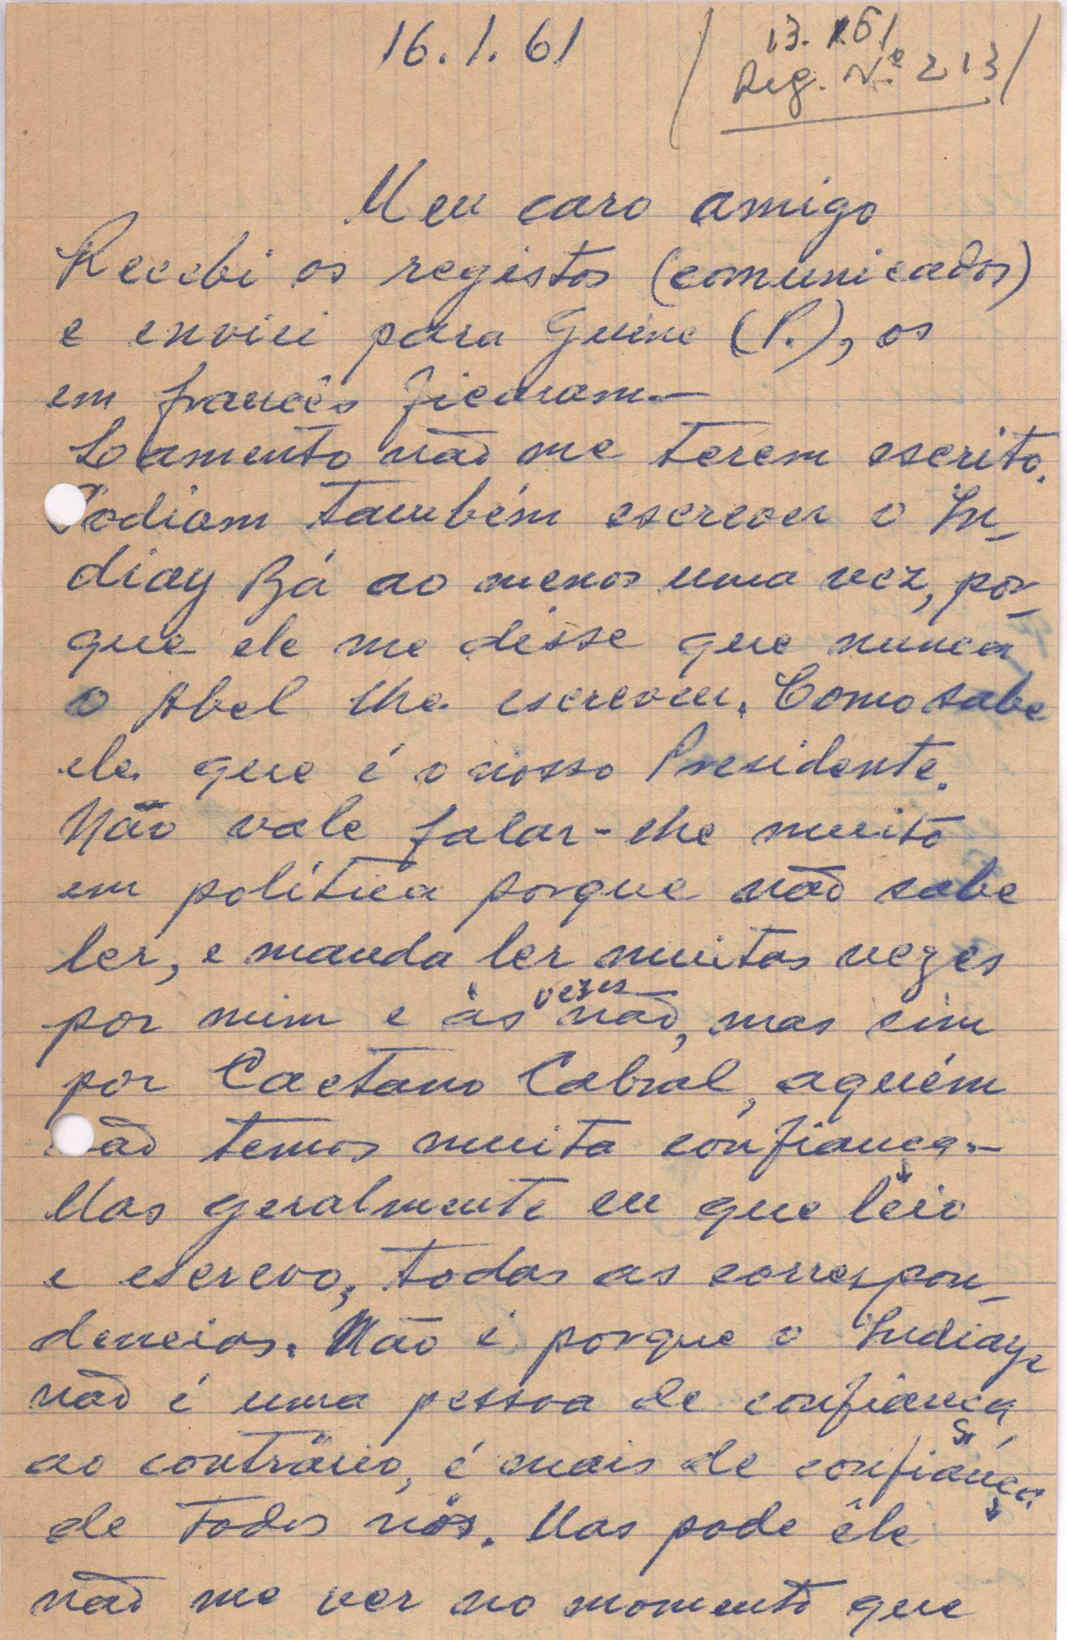 16.1.61
13.1.61
Reg. Nº 213
Meu caro amigo
Recebi os registos (comunicados)
e enviei para Guiné (P.), os
em francês ficaram.—
Lamento não me terem escrito.
Podiam também escrever o In-
diay Bá ao menos uma vez, por-
que ele me disse que nunca
o Abel lhe escreveu. Como sabe
ele que é o nosso Presidente.
Não vale falar-lhe muito
em política porque não sabe
ler, e manda ler muitas vezes
por mim e às vezes não, mas sim
por Caetano Cabral, aquém
não temos muita confiança.—
Mas geralmente eu que lêio
e escrevo, todas as correspon-
dencias. Não é porque o Indiaye
não é uma pessoa de confiança
ao contrário, é mais de confiança
de todos nós. Mas pode êle
não me ver no momento que